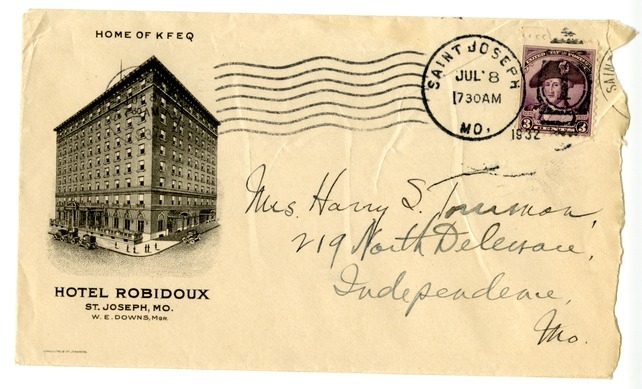 HOME OF KFEQ
SAINT JOSEPH
JUL 8
730AM
MO.
1932
3 3
SAINT
Mrs. Harry S. Truman,
219 North Deleware,
Independence,
Mo.
HOTEL ROBIDOUX
ST. JOSEPH, MO.
W. E. DOWNS, MGR.